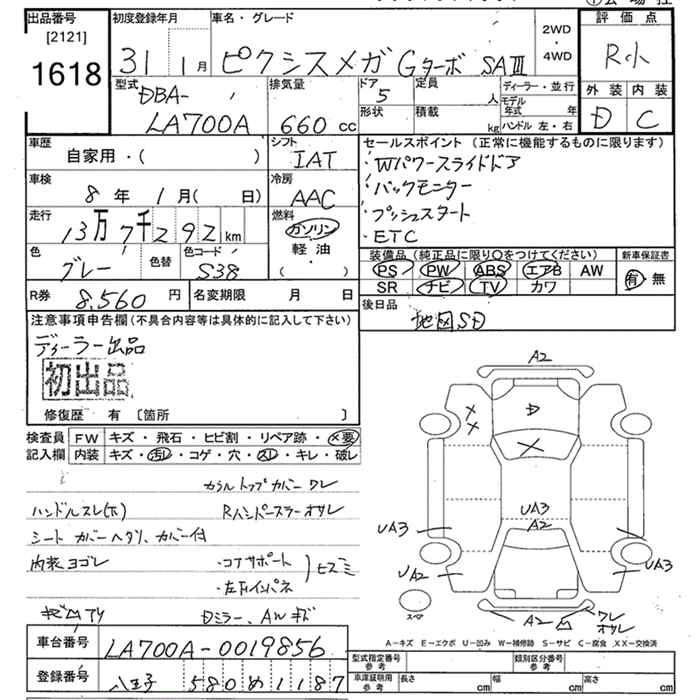 出品番号
[2121]
1618
初度登録年月
31 1月
車名・グレード
ピクシスメガ Gターボ SAⅢ
2WD
・
4WD
評価点
R小
外装 内装
D C
型式
DBA-
LA700A
排気量
660 cc
ドア
5
形状
定員
人
積載
kg
ディーラー・並行
モデル年式 年
ハンドル 左・右
車歴
自家用・( )
シフト
IAT
車検
8年 1月( 日)
冷房
AAC
走行
13万7千292km
燃料
ガソリン
軽油
・( )
色
グレー
色替
色コード
S38
R券
8,560円
名変期限 月 日
セールスポイント (正常に機能するものに限ります)
・Wパワースライドドア
・バックモニター
・プッシュスタート
・ETC
装備品 (純正品に限り○をつけてください)
PS PW ABS エアB AW
SR ナビ TV カワ
新車保証書
有・無
後日品
地図SD
注意事項申告欄(不具合内容等は具体的に記入して下さい)
ディーラー出品
初出品
修復歴 有 〔箇所 〕
検査員記入欄
FW キズ・飛石・ヒビ割・リペア跡・×要
内装 キズ・汚レ・コゲ・穴・スレ・キレ・破レ
カウルトップカバーワレ
ハンドルスレ(ホ)
シートカバーヘタリ、カバー付
内装ヨゴレ
・コアサポート
・左フインパネ
Dミラー、AWキズ
車台番号
LA700A-0019856
登録番号
八王子 580 め 1187
A2
D
X
X
X
UA3
A2
UA3
UA2
UA3
A2
ワレ
オサレ
スペア
A-キズ E-エクボ U-凹み W-補修跡 S-サビ C-腐食 XX-交換済
型式指定番号 参考
類別区分番号 参考
車庫証明用 参考
長さ cm
幅 cm
高さ cm